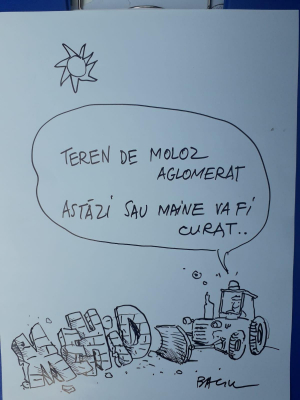 TEREN DE MOLOZ
AGLOMERAT
ASTĂZI SAU MAINE VA FI
CURAT..
BACIU